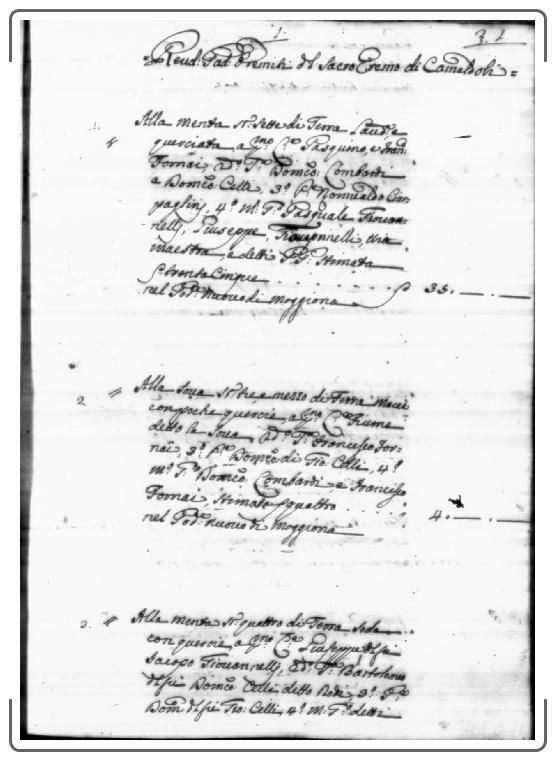 1
3. 1
= Reud: Pad: Eremiti dl Sacro Eremo di Camaldoli =
1. " Alla menta Sr: sette di Terra Lau: e
querciata a pmo Ce Pasquino, e Fran:
Fornai, 2do Po Domco: Combardi
e Domco: Celli, 3o Pe Romualdo Cian
paglini, 4o Mo Po Pasquale Giovan=
nelli, Giuseppe Giovannelli, via
maestra, e detti PP: stimata
trenta cinque
nel Pode: nuovo di Moggiona 35. — . —
2. " Alla Sova Sr: tre, e mezzo di Terra
con poche quercie, a pmo Ce Fiume
detto la Sova, 2do Po Francesco For=
nai, 3o Pe Domco: di Gio: Celli, 4o
Mo Po Domco: Combardi e Francesco
Fornai, stimata quattro
nel Pode: nuovo di Moggiona 4. — . —
3. " Alla menta Sr: quattro di Terra soda
con quercie, a pmo Ce Giuseppe di
Jacopo Giovannelli, 2do Po Bartolomeo
Domco: Celli detto 3o Pe
Dom: Gio: Celli, 4o M: Po detti